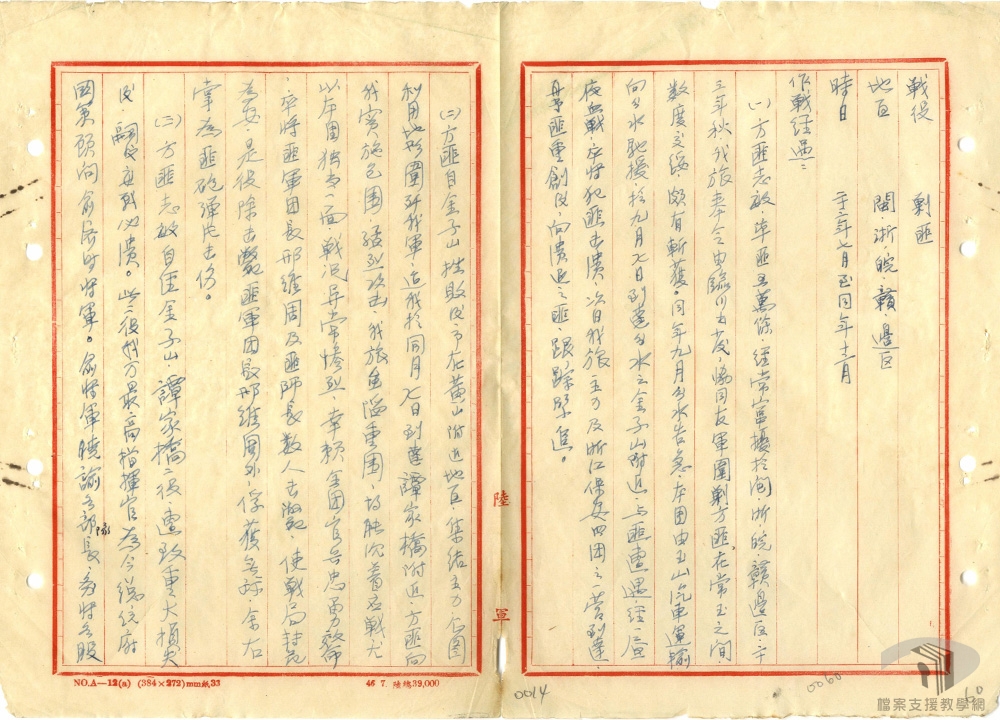 戰役　剿匪
地區　閩、浙、皖、贛、邊區
時日　二十三年七月至同年十二月
作戰經過：
(一)方匪志敏、率匪五萬餘、經常山富擾於閩、浙、皖、贛邊區、二十
三年秋、我旅奉令由臨川出發、協同友軍圍剿方匪、在常玉之間、
數度交綏、頗有斬獲。同年九月分水告急、本團由玉山汽車運輸
向分水馳援、於九月九日到達分水之金子山附近、與匪遭遇、經一晝
夜血戰、卒將犯匪擊潰、次日我旅主力及浙江保安四團之一營到達、
予匪重創後、向潰退之匪、跟踪緊追。
(二)方匪自金子山挫敗後、市在黃山附近地區、集結主力、企圖
利用地形圍殲我軍、迨我於同月 七日到達譚家橋附近、方匪向
我實施包圍、猛烈攻擊、我旅陷重圍、均能沉着應戰、尤
以本團獨當一面、戰況異常慘烈、幸賴全團官兵忠勇效命
、卒將匪軍團長邢維周及匪師長數人擊斃、使戰局轉危
為安、是役除擊斃匪軍團長邢維周外、俘獲無算、余右
掌為匪砲彈片击伤。
(三)方匪志敏自經金子山、譚家橋二役、遭致重大損失
後、嗣後每戰必潰。此二役我方最高指揮官為今總統府
國策顧問俞濟時將軍。俞將軍曉諭各部隊長、務將各股
陸
軍
NO.A—12(a) (384×272)mm紙33
46 7. 陸總39,000
0014
0060
60
檔案支援教學網